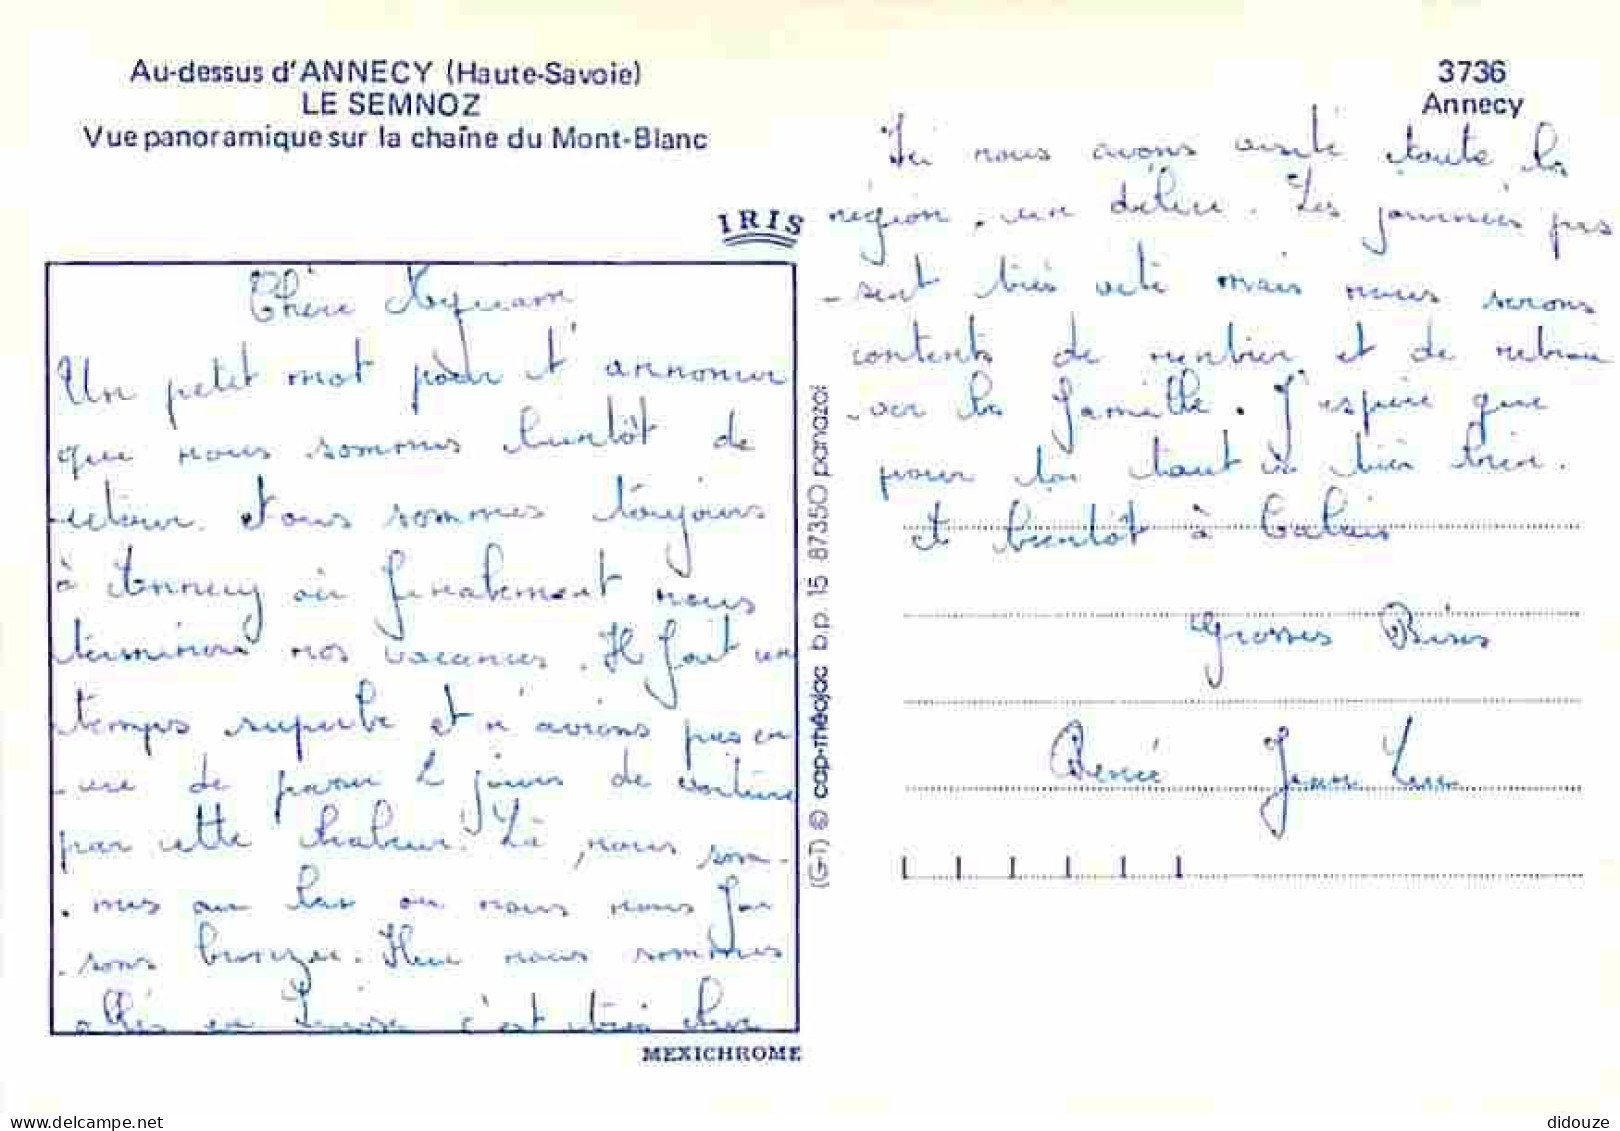 Au-dessus d'ANNECY (Haute-Savoie)
LE SEMNOZ
Vue panoramique sur la chaîne du Mont-Blanc
3736
Annecy
IRIS
Chère
Un petit mot pour t'annoncer
que nous sommes bientôt de
retour. Nous sommes toujours
à Annecy où finalement nous
terminons nos vacances. Il fait un
temps superbe et n'avions pas en
-vie de passer 2 jours de voiture
par cette chaleur. Là, nous som-
-mes au lac où nous nous fai
-sons bronzer. Hier nous sommes
allés en Suisse c'est très cher
MEXICHROME
(G-T) © cap-théojac b.p. 15 87350 panazol
Ici nous avons visité toute la
région, un délice. Les journées pas
-sent très vite mais nous serons
contents de rentrer et de retrou
-ver la famille. J'espère que
pour toi tout va très bien.
et bientôt à Calais
Grosses Bises
Renée Jean Luc
didouze
www.delcampe.net